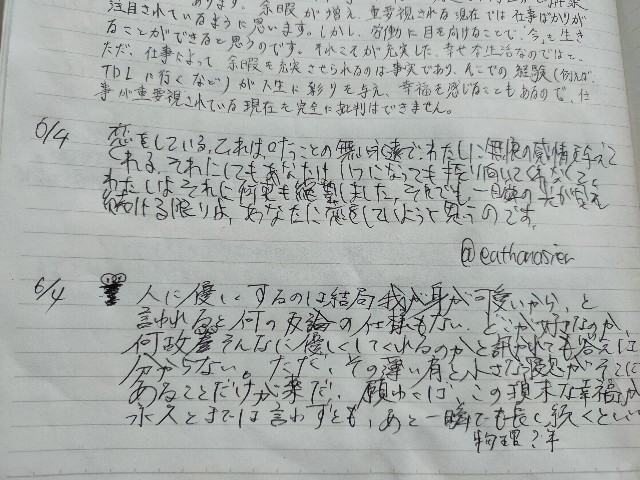 注目されているように思います。しかし、労働に目を向けることで、今を生き
ることができると思うのです。それこそが充実した、幸せな生活なのではと、
ただ、仕事によって余暇を充実させられるのは事実であり、そこでの経験(例えば、
TDLに行くなど)が人生に彩りを与え、幸福を感じることもあるので、仕
事が重要視されている現在を完全に批判はできません。
6/4 恋をしている。これは
くれる。それにしてもあなたはいつになっても振り向いてくれなくて、
わたしはそれに何度も絶望しました。それでも、一筋の光が見え
続ける限りは、あなたに恋をしていようと思うのです。
@eathanasier
6/4 人に優しくするのは結局我が身が可愛いから、と
言われると何の反論の仕様もない。どこが好きなのか、
何故そんなに優しくしてくれるのかと訊かれても答えは
分からない。ただ、その
あることだけが楽だ。願わくは、この瑣末な幸福が
永久とまでは言わずとも、あと一瞬でも長く続くといい
物理?年